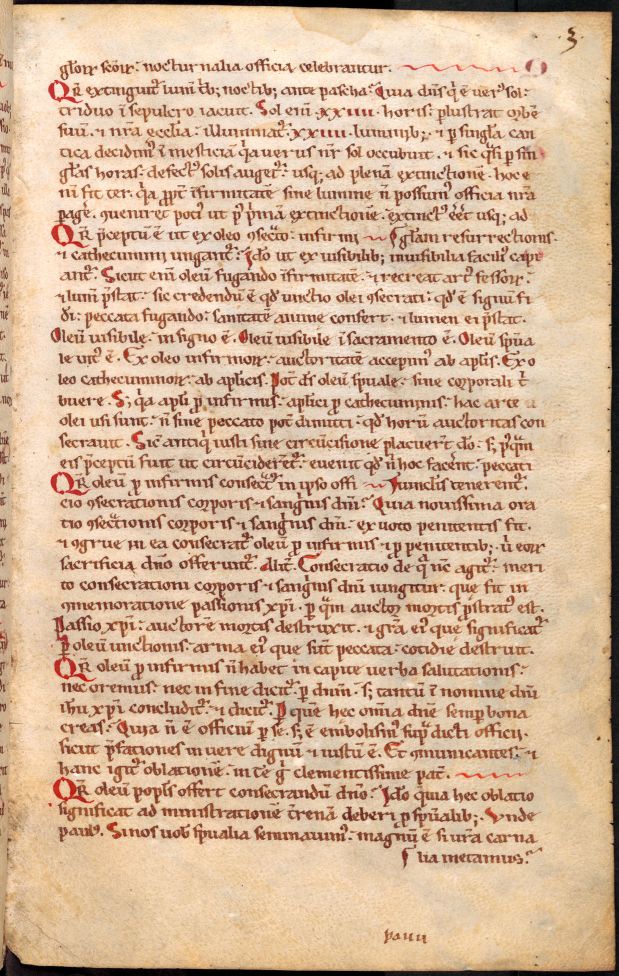 3
głorꝝ sc̄orꝝ. nocturnalia officia celebrantur.
Qr̄ extinguit᷑ lumī trib; noctib; ante pascha. Quia dn̄s q̇ ē ver᷒ sol.
triduo ī sepulcro iacuit. Sol enī xxiiii. horis. plustrat orbē
suū. ⁊ nr̄a ecclīa. illuminat᷑ xxiiii. luminib;. ⁊ ꝑ singła can
tica decidim᷒ ī mesticiā q̇a verus nr̄ sol occubuit. ⁊ sic q̇si ꝑ sin
głas horas. defect᷒ solis auget᷑. usq; ad plenā extinctionē. hoc e
ni fit ter. q̇a ꝓpt̄ īfirmitatē sine lumine n̄ possum᷒ officia nr̄a
page. ꝯueniret poti᷒ ut pꝰ ṗmā extinctionē. extinct᷒ eēt usq; ad
Qr̄ p̄ceptū ē ut ex oleo ꝯsec̄to. infirmi głam resurrectionis.
⁊ cathecumini ungant᷑. Ido ut ex uisibilib; inuisibilia facili᷒ capi
ant᷑. Sicut enī oleū fugando īfirmitatē. ⁊ recreat art᷒ fessorꝝ.
⁊ lumī p̄stat. sic credendū ē qd̄ unctio olei ꝯsecrati. qd̄ ē signū fi
di. peccata fugando. sanitatē anime confert. ⁊ lumen ei p̄stat.
Oleū uisibile. in signo ē. Oleū uisibile ī sacramento ē. Oleū sp̄ua
le uirt᷒ ē. Ex oleo infirmorꝝ. auctoritatē accepim᷒ ab apłis. Ex o
leo cathecuminorꝝ. ab apłicis. Pot̄ ds̄ oleū sp̄uale. sine corporali t̄
buere. S; q̇a apłi ꝓ infirmis. apłici ꝓ cathecuminis. hac arte
olei usi sunt. n̄ sine peccato pot̄ dimitti. qd̄ horū auctoritas con
secrauit. Sic̄ antiq̇ iusti sine circūcisione placuer̄t dō. s; pꝰq̇m
eis p̄ceptū fuit ut circūciderēt᷑. euenit qd̄ n̄ hoc facent. peccati
Qr̄ oleū ꝓ infirmis consec̄t᷑ in ipso offi uinclis tenerent᷑.
cio ꝯsecrationis corporis ⁊ sanḡnis dn̄i. Quia nouissima ora
tio ꝯsec̄tionis corporis ⁊ sanḡnis dn̄i. ex uoto penitentis fit.
⁊ ꝯgrue in ea consecrat᷑ oleū ꝓ infirmis. ⁊ ꝓ penitentib;. ꝯ̄ eorꝝ
sacrificia dn̄o offerunt᷑. Alit̄. Consecratio de q̇ nc̄ agit᷑. meri
to consecrationi corporis ⁊ sanḡnis dn̄i iungitur. que fit in
ꝯmemoratione passionis xpī. ꝑ q̇m auctor mortis ꝓstrat᷒ est.
Passio xpī. auctorē mortis destruxit. ⁊ grā ei᷒ que significat᷑
ꝑ oleū unctionis. arma ei᷒ que sūt peccata. cotidie destruit.
Qr̄ oleū ꝓ infirmis n̄ habet in capite verba salutationis.
nec oremus. nec in fine dicit᷑. per dn̄m. s; tantū ī nomine dn̄i
ihu xpī concludit᷑. ⁊ dicit᷑. P quē hec om̄ia dn̄e semp bona
creas. Quia n̄ ē officiū ꝑ se. s; ē embolism᷒ sup̄ dicti officij.
sicut p̄fationes in uere dignū ⁊ iustū ē. Et ꝯmunicantes. ⁊
hanc igit᷑ oblationē. in te ḡ clementissime pat̄.
Qr̄ oleū popl̄s offert consecrandū dn̄o. Ido quia hec oblatio
significat ad ministrationē t̄renā deberi ꝓ sp̄ualib;. Unde
paul᷒. Si nos uob̄ sp̄ualia seminauim᷒. magnū ē si ur̄a carna
lia metamus.